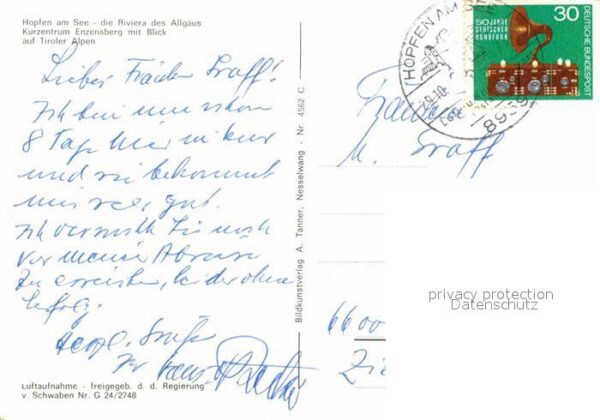 Hopfen am See - die Riviera des Allgäus
Kurzentrum Enzensberg mit Blick
auf Tiroler Alpen
Liebes Fräulein Graff!
Ich bin nun schon
8 Tage hier in Kur
und sie bekommt
mir sehr gut.
Ich versuchte Sie noch
vor meiner Abreise
zu erreichen, leider ohne
Erfolg.
Herzl. Grüße
Ihr Hans
Luftaufnahme - freigegeb. d. d. Regierung
v. Schwaben Nr. G 24/2748
Bildkunstverlag A. Tanner, Nesselwang - Nr. 4562 C
HOPFEN AM SEE
8959
50 JAHRE
DEUTSCHER
RUNDFUNK
30
DEUTSCHE BUNDESPOST
Fräulein
M. Graff
privacy protection
Datenschutz
6600